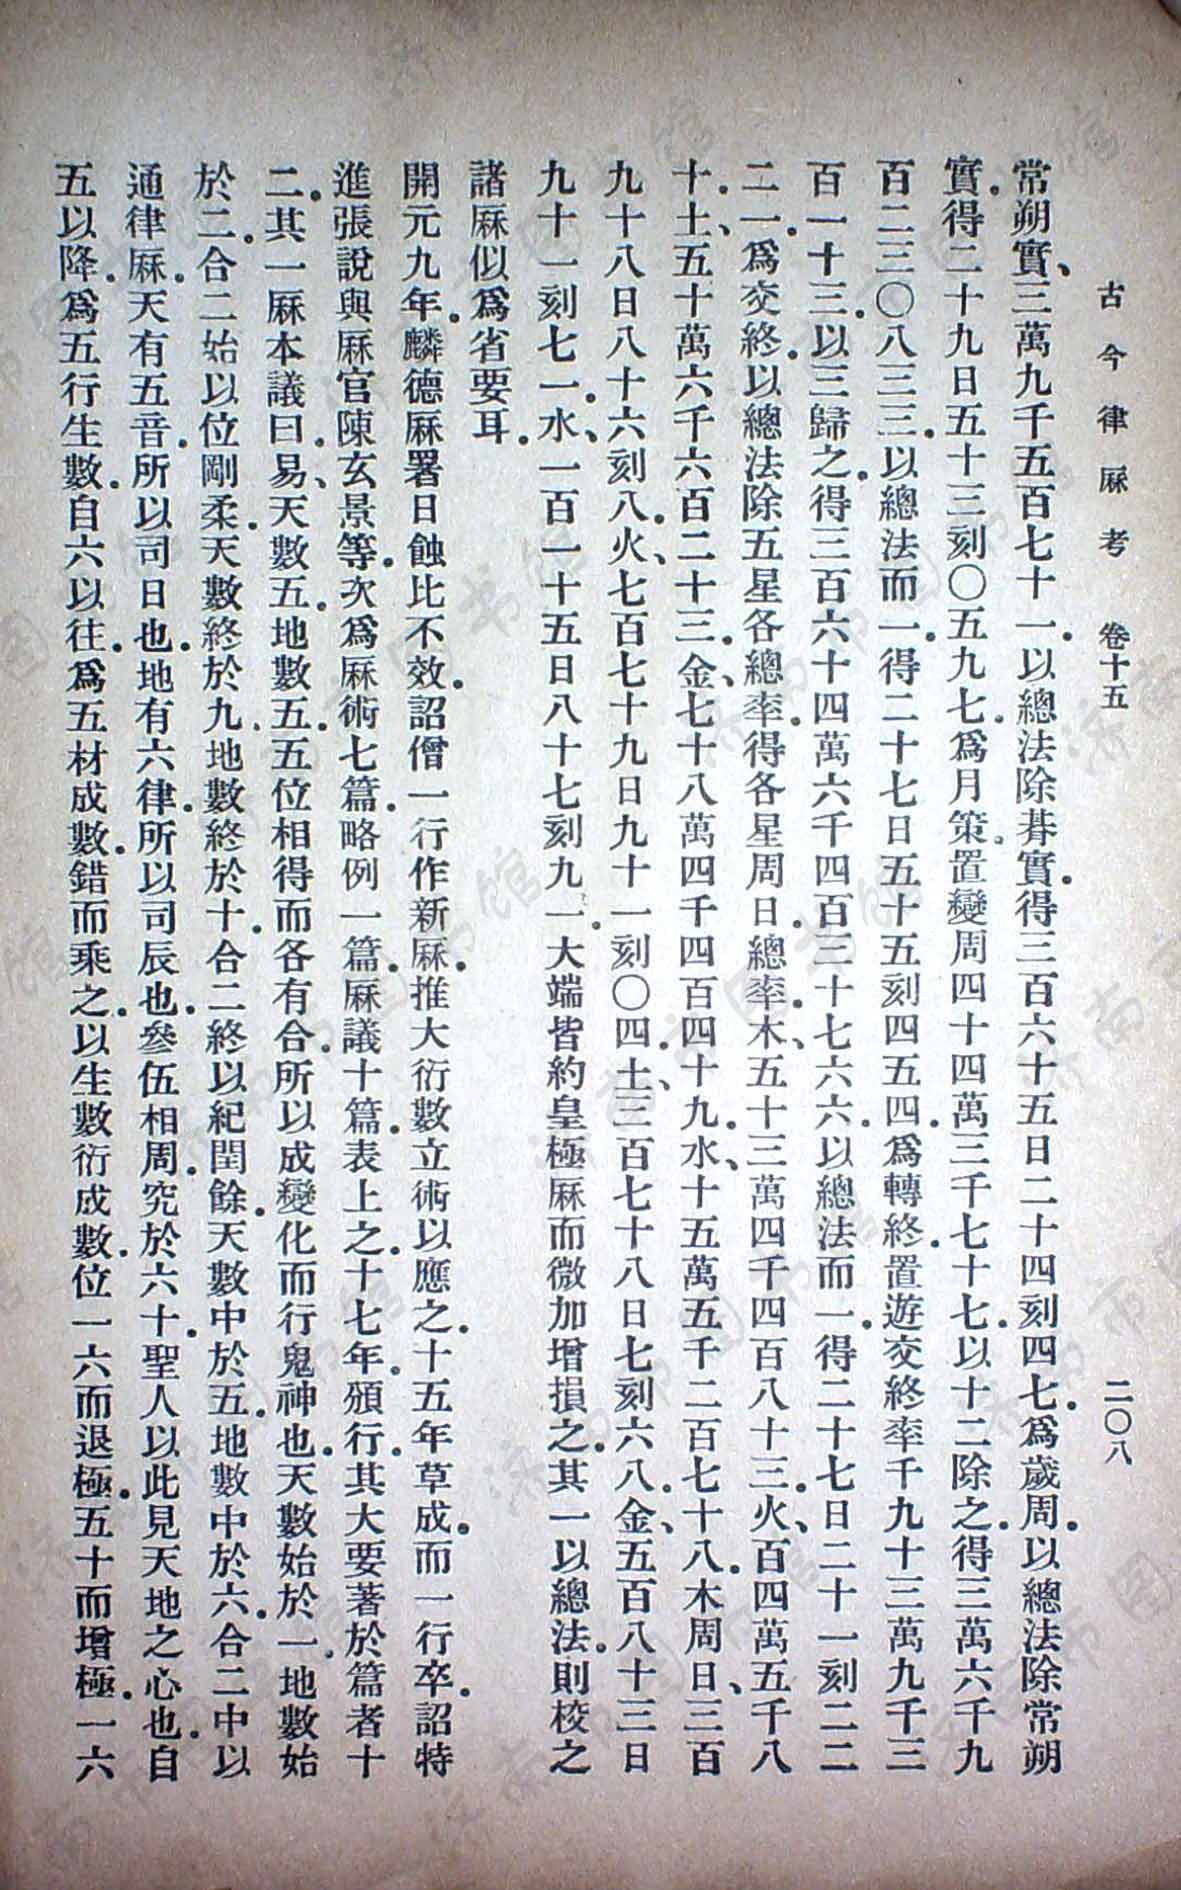 古今律厤考 卷十五 二〇八
常朔實、三萬九千五百七十一．以總法除朞實．得三百六十五日二十四刻四七．爲歲周．以總法除常朔
實．得二十九日五十三刻〇五九七．爲月策．置變周四十四萬三千七十七．以十二除之．得三萬六千九
百二三〇八三三．以總法而一．得二十七日五十五刻四五四．爲轉終．置遊交終率千九十三萬九千三
百一十三．以三歸之．得三百六十四萬六千四百三十七六六．以總法而一．得二十七日二十一刻二二
二一．爲交終．以總法除五星各總率．得各星周日．總率．木、五十三萬四千四百八十三．火、百四萬五千八
十．土、五十萬六千六百二十三．金、七十八萬四千四百四十九．水、十五萬五千二百七十八．木周日、三百
九十八日八十六刻八．火、七百七十九日九十一刻〇四．土、三百七十八日七刻六八．金、五百八十三日
九十一刻七一．水、一百一十五日八十七刻九一．大端皆約皇極厤而微加增損之．其一以總法．則校之
諸厤似爲省要耳．
開元九年．麟德厤署日蝕比不效．詔僧一行作新厤．推大衍數立術以應之．十五年草成．而一行卒．詔特
進張說與厤官陳玄景等．次爲厤術七篇．略例一篇．厤議十篇．表上之．十七年．頒行．其大要著於篇者十
二．其一厤本議曰．易、天數五．地數五．五位相得而各有合．所以成變化而行鬼神也．天數始於一．地數始
於二．合二始以位剛柔．天數終於九．地數終於十．合二終以紀閏餘．天數中於五．地數中於六．合二中以
通律厤．天有五音．所以司日也．地有六律．所以司辰也．參伍相周．究於六十．聖人以此見天地之心也．自
五以降．爲五行生數．自六以往．爲五材成數．錯而乘之．以生數衍成數．位一六而退極．五十而增極．一六